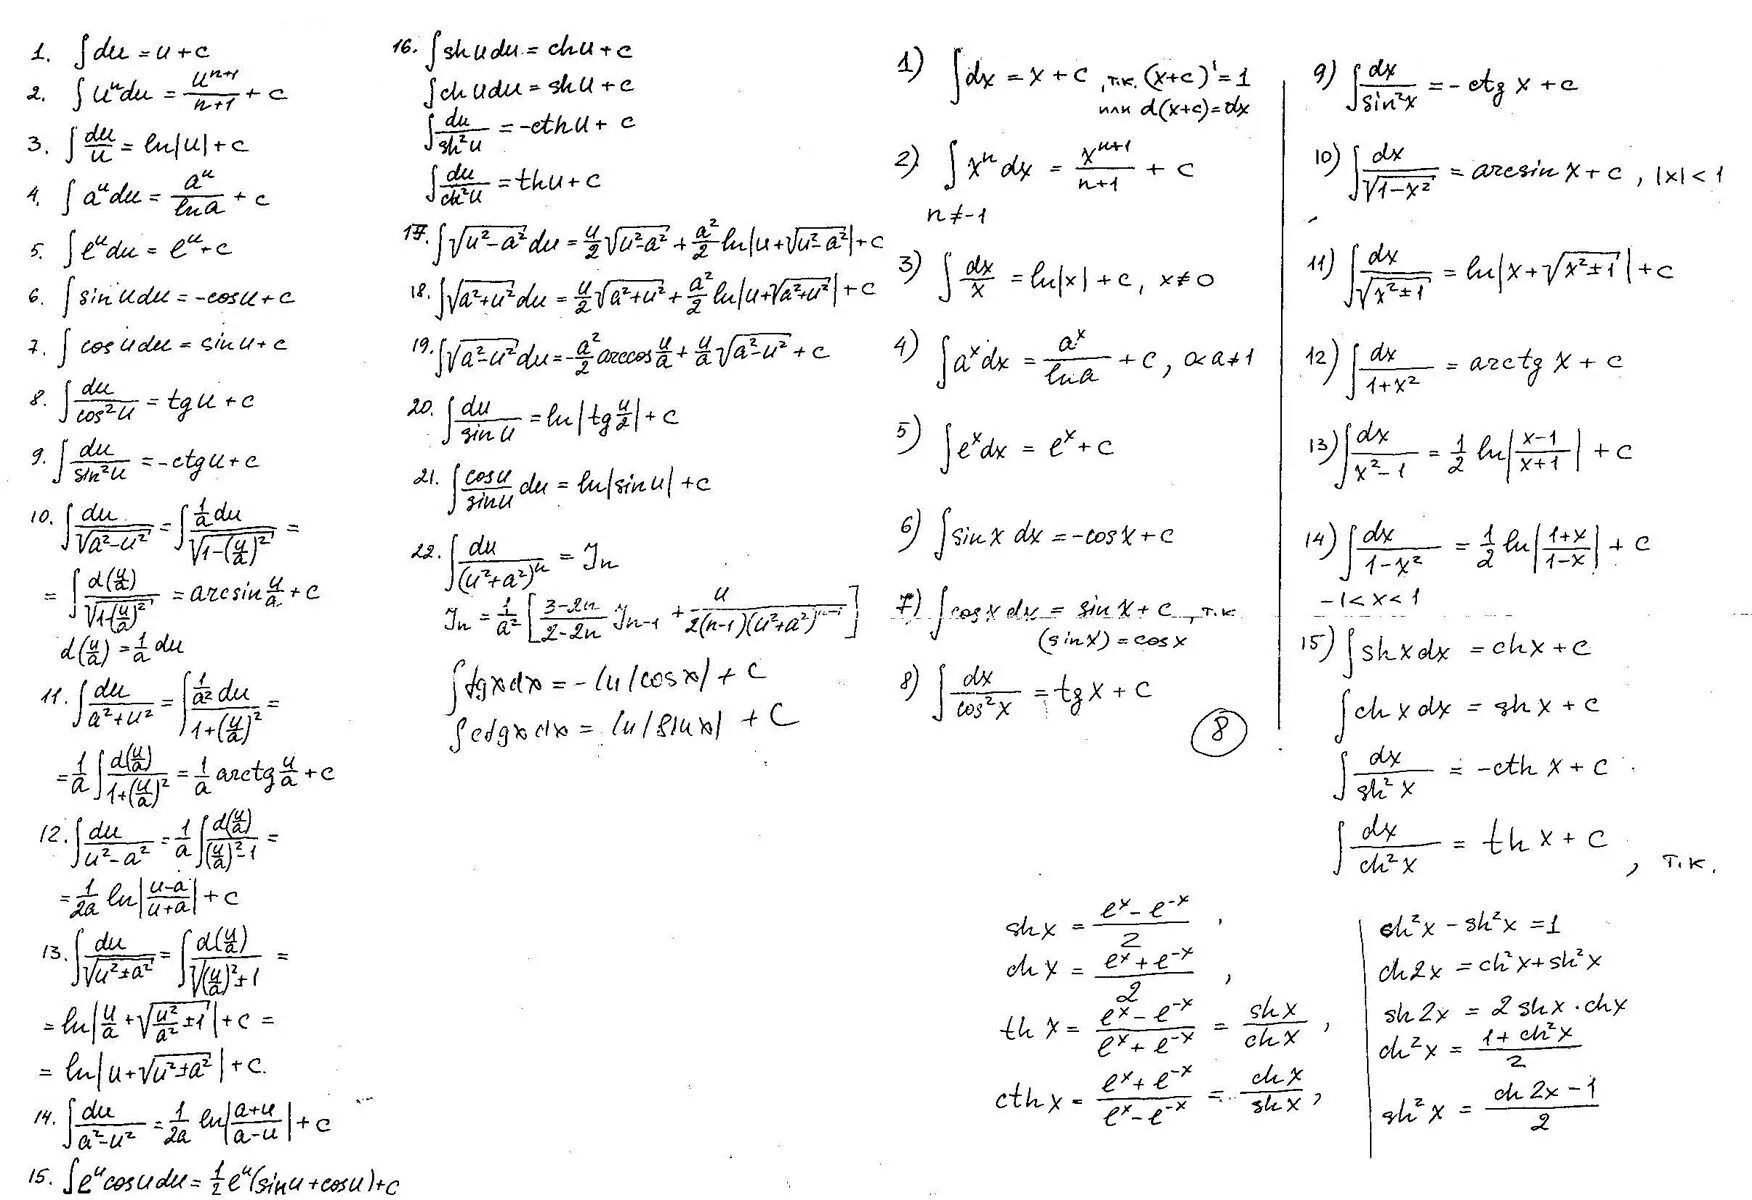 1. ∫du = u + c
2. ∫uⁿdu = uⁿ⁺¹/(n+1) + c
3. ∫du/u = ln|u| + c
4. ∫aᵘdu = aᵘ/ln a + c
5. ∫eᵘdu = eᵘ + c
6. ∫sin u du = -cos u + c
7. ∫cos u du = sin u + c
8. ∫du/cos²u = tg u + c
9. ∫du/sin²u = -ctg u + c
10. ∫du/√(a²-u²) = ∫(1/a)du/√(1-(u/a)²) =
= ∫d(u/a)/√(1-(u/a)²) = arcsin u/a + c
d(u/a) = 1/a du
11. ∫du/(a²+u²) = ∫(1/a²)du/(1+(u/a)²) =
= 1/a ∫d(u/a)/(1+(u/a)²) = 1/a arctg u/a + c
12. ∫du/(u²-a²) = 1/a ∫d(u/a)/((u/a)²-1) =
= 1/2a ln|(u-a)/(u+a)| + c
13. ∫du/√(u²±a²) = ∫d(u/a)/√((u/a)²±1) =
= ln|u/a + √(u²/a² ± 1)| + c =
= ln|u + √(u²±a²)| + c.
14. ∫du/(a²-u²) = 1/2a ln|(a+u)/(a-u)| + c
15. ∫eᵘcos u du = 1/2 eᵘ(sin u + cos u) + c
16. ∫sh u du = ch u + c
∫ch u du = sh u + c
∫du/sh²u = -cth u + c
∫du/ch²u = th u + c
17. ∫√(u²-a²) du = u/2 √(u²-a²) + a²/2 ln|u + √(u²-a²)| + c
18. ∫√(a²+u²) du = u/2 √(a²+u²) + a²/2 ln|u + √(a²+u²)| + c
19. ∫√(a²-u²) du = -a²/2 arccos u/a + u/a √(a²-u²) + c
20. ∫du/sin u = ln|tg u/2| + c
21. ∫cos u/sin u du = ln|sin u| + c
22. ∫du/(u²+a²)ⁿ = Jₙ
Jₙ = 1/a² [(3-2n)/(2-2n) Jₙ₋₁ + u/(2(n-1)(u²+a²)ⁿ⁻¹)]
∫tgx dx = -ln|cosx| + C
∫ctgx dx = ln|sinx| + C
1) ∫dx = x + c, т.к. (x+c)' = 1
или d(x+c) = dx
2) ∫xⁿ dx = xⁿ⁺¹/(n+1) + c
n ≠ -1
3) ∫dx/x = ln|x| + c, x ≠ 0
4) ∫aˣ dx = aˣ/ln a + c, 0<a≠1
5) ∫eˣdx = eˣ + c
6) ∫sin x dx = -cos x + c
7) ∫cos x dx = sin x + c, т.к
(sin x)' = cos x
8) ∫dx/cos²x = tg x + c
8
9) ∫dx/sin²x = -ctg x + c
10) ∫dx/√(1-x²) = arcsin x + c, |x| < 1
11) ∫dx/√(x²±1) = ln|x + √(x²±1)| + c
12) ∫dx/(1+x²) = arctg x + c
13) ∫dx/(x²-1) = 1/2 ln|(x-1)/(x+1)| + c
14) ∫dx/(1-x²) = 1/2 ln|(1+x)/(1-x)| + c
-1 < x < 1
15) ∫sh x dx = ch x + c
∫ch x dx = sh x + c
∫dx/sh²x = -cth x + c
∫dx/ch²x = th x + c, т.к.
sh x = (eˣ - e⁻ˣ)/2,
ch x = (eˣ + e⁻ˣ)/2,
th x = (eˣ - e⁻ˣ)/(eˣ + e⁻ˣ) = sh x/ch x,
cth x = (eˣ + e⁻ˣ)/(eˣ - e⁻ˣ) = ch x/sh x,
ch²x - sh²x = 1
ch2x = ch²x + sh²x
sh2x = 2 shx · chx
ch²x = (1 + ch²x)/2
sh²x = (ch 2x - 1)/2